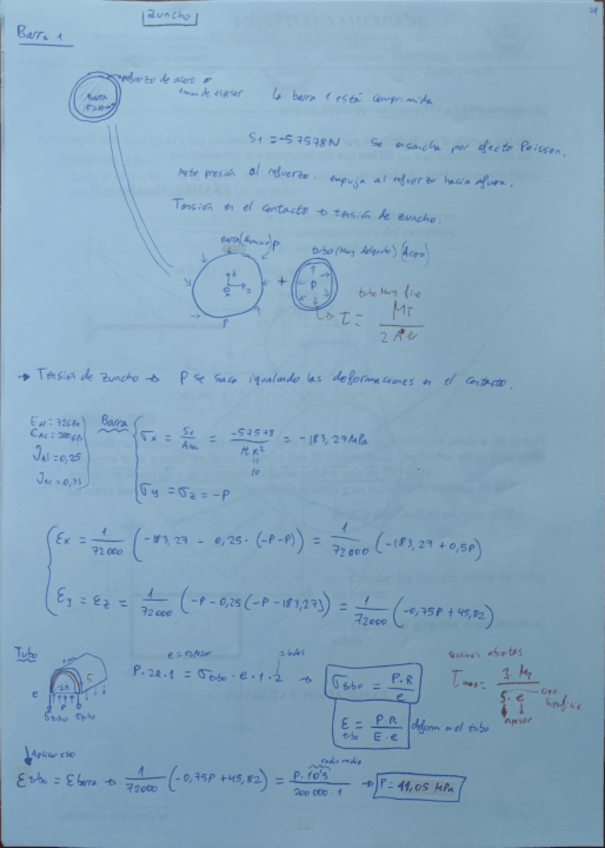 Zuncho
Barra 1
refuerzo de acero
1mm de espesor.
Barra
La barra 1 está comprimida
S1 = -57578N Se ensancha por efecto Poisson.
Mete presión al refuerzo. empuja al refuerzo hacia afuera.
Tensión en el contacto → tensión de zuncho.
barra (Aluminio) P
tubo (Muy delgado) (Acero)
P
P
+
tubo muy fino
τ = MT / 2·A*·e
→ Tensión de zuncho → P se saca igualando las deformaciones en el contacto.
EAl = 72GPa
EAc = 200GPa
νAl = 0,25
νAc = 0,33
Barra
σx = S1 / A = -57578 / πR² = -183,27MPa
10
σy = σz = -P
εx = 1/72000 (-183,27 - 0,25·(-P-P)) = 1/72000 (-183,27 + 0,5P)
εy = εz = 1/72000 (-P - 0,25(-P - 183,27)) = 1/72000 (-0,75P + 45,82)
Tubo
e = espesor
2 lados
P·2R·1 = σtubo·e·1·2 → σtubo = P·R / e
e
2R
P
σtubo σtubo
εtubo = P R / E·e deform en el tubo
secciones abiertas
τmax = 3·MT / S·e
espesor
Aplicar eso
radio medio
εtubo = εbarra → 1/72000 (-0,75P + 45,82) = P·10'5 / 200000·1 → P = 11,05 MPa